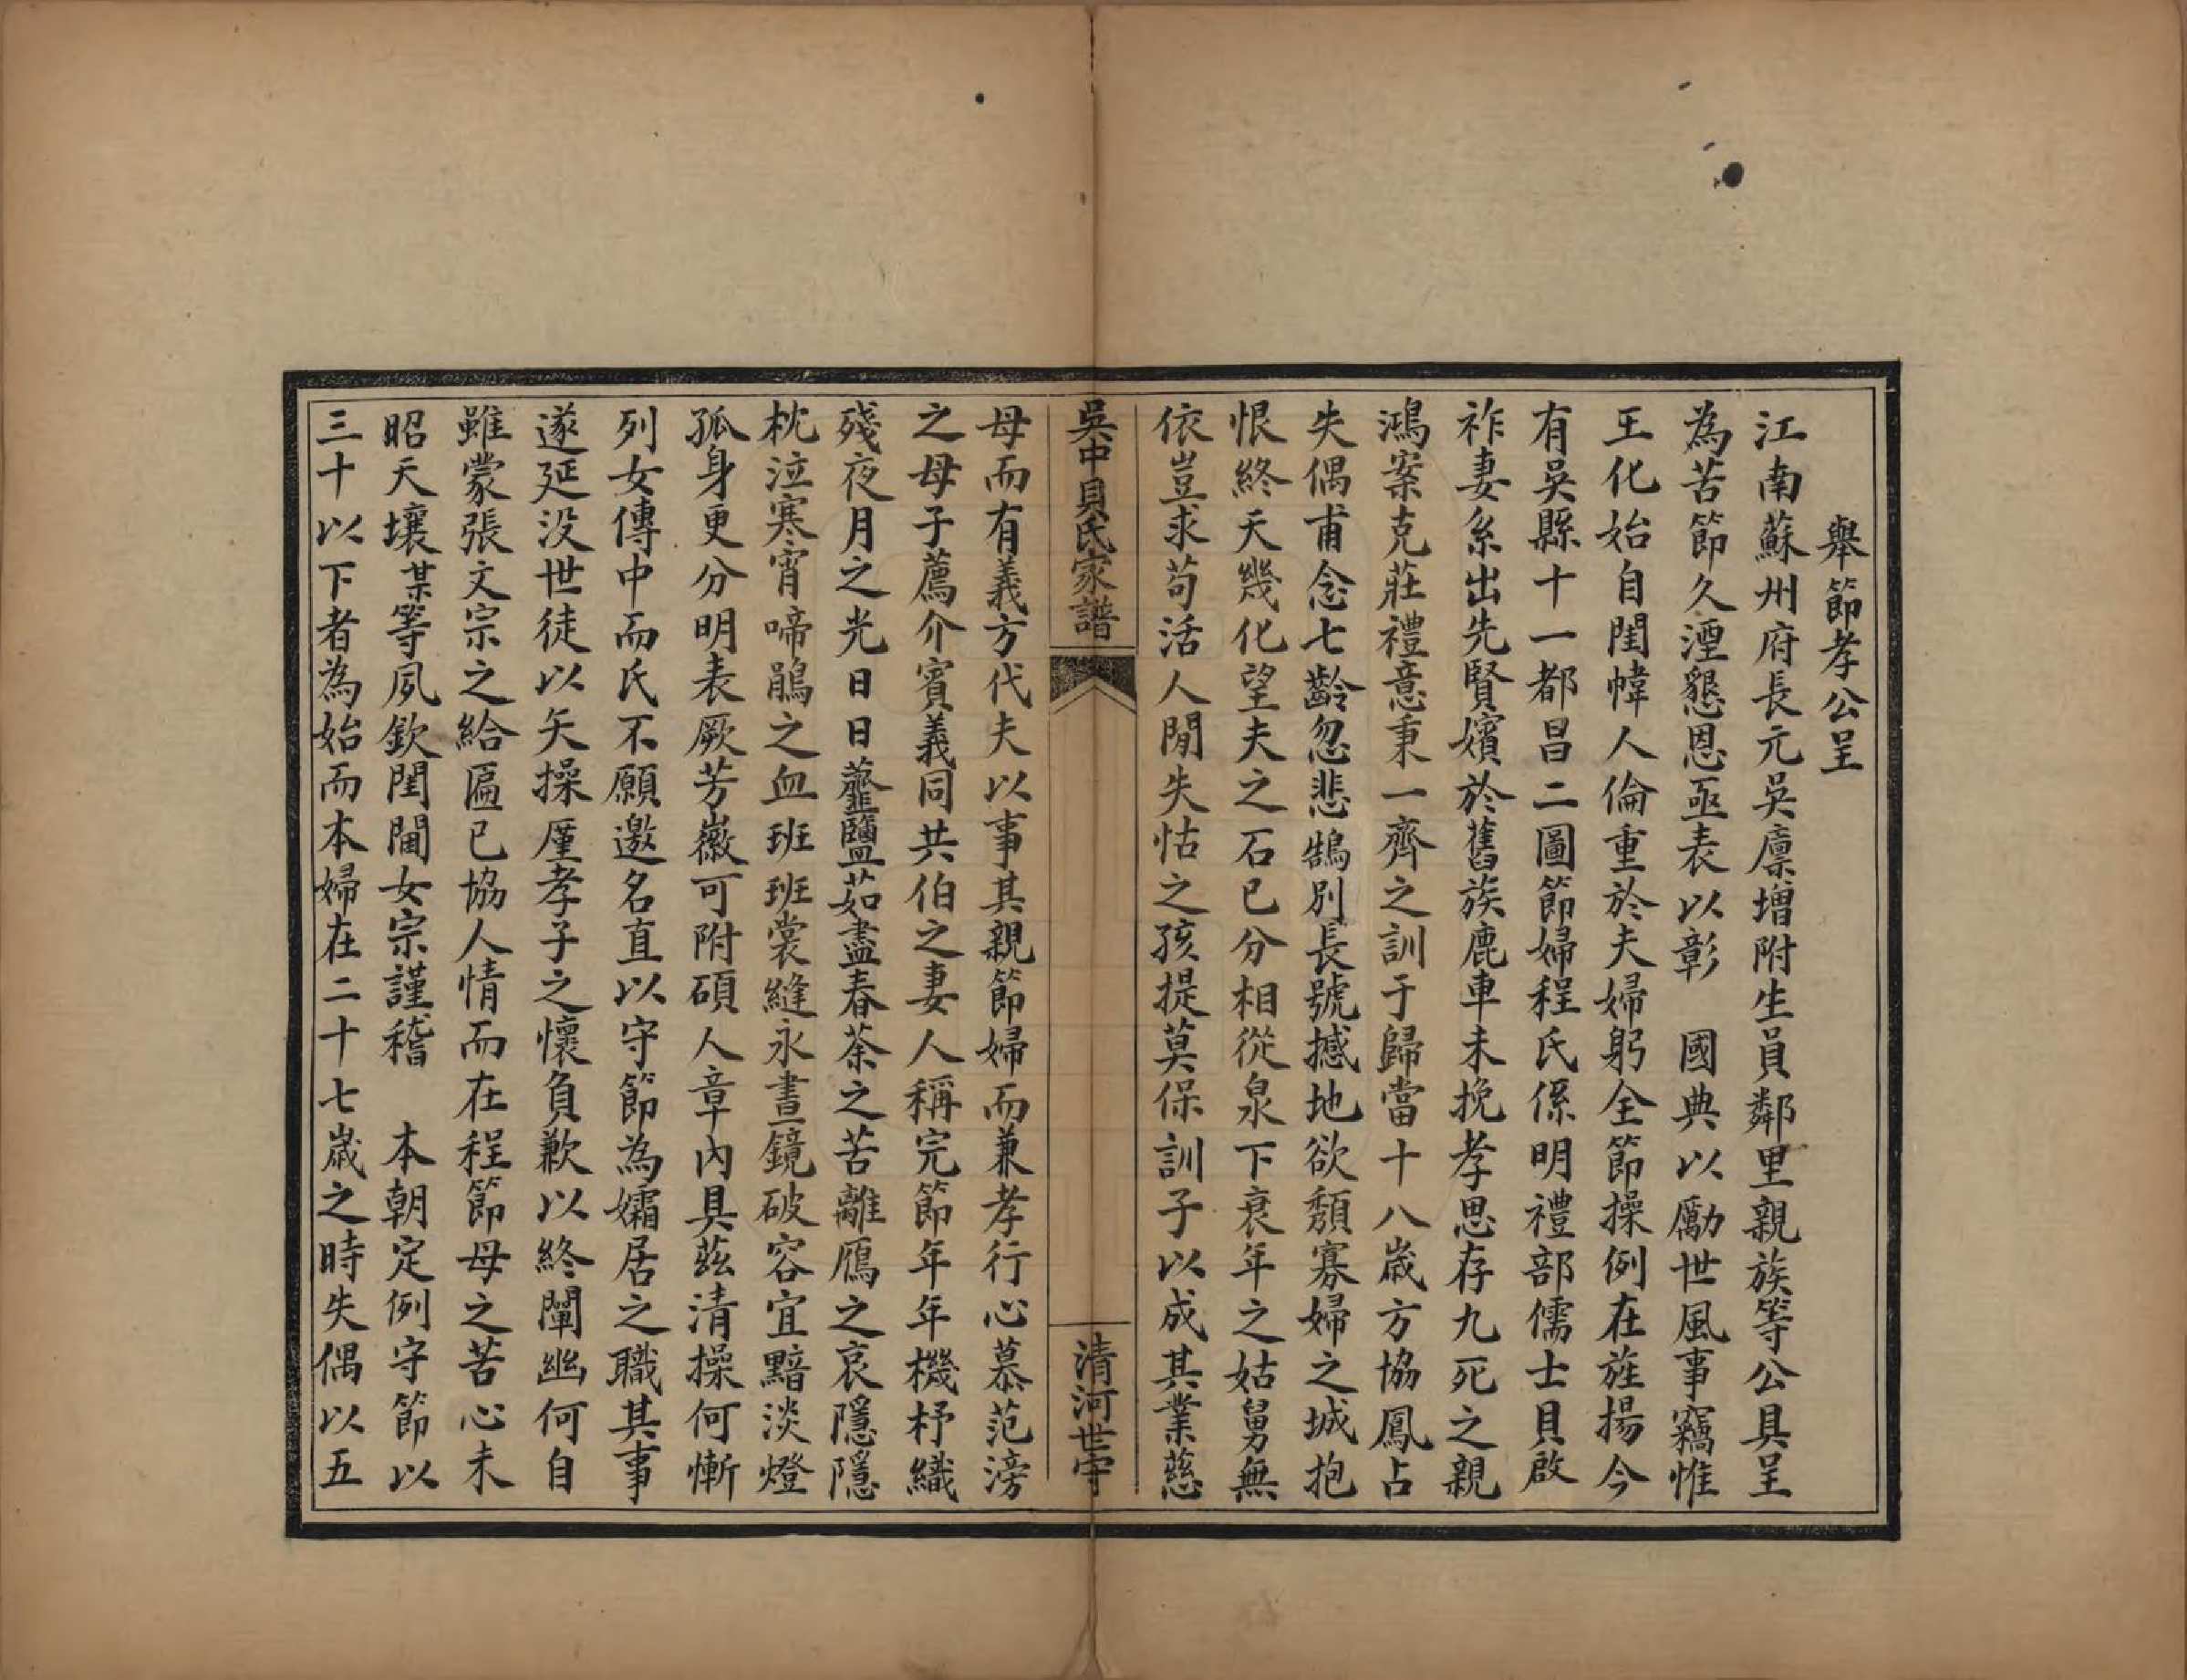 舉節孝公呈
江南蘇州府長元吳廩增附生員鄰里親族等公具呈
為苦節久湮懇恩亟表以彰　國典以勵世風事竊惟
王化始自閨幃人倫重於夫婦躬全節操例在旌揚今
有吳縣十一都昌二圖節婦程氏係明禮部儒士貝啟
祚妻系出先賢嬪於舊族鹿車未挽孝思存九死之親
鴻案克莊禮意秉一齊之訓于歸當十八歲方協鳳占
失偶甫念七齡忽悲鵠別長號撼地欲頹寡婦之城抱
恨終天幾化望夫之石已分相從泉下衰年之姑舅無
依豈求苟活人閒失怙之孩提莫保訓子以成其業慈
吳中貝氏家譜
清河世守
母而有義方代夫以事其親節婦而兼孝行心慕范滂
之母子薦介賓義同共伯之妻人稱完節年年機杼織
殘夜月之光日日虀鹽茹盡春荼之苦離鴈之哀隱隱
枕泣寒宵啼鵑之血班班裳縫永晝鏡破容宜黯淡燈
孤身更分明表厥芳徽可附碩人章內具茲清操何慚
列女傳中而氏不願邀名直以守節為孀居之職其事
遂延沒世徒以矢操厪孝子之懷負歉以終闡幽何自
雖蒙張文宗之給匾已協人情而在程節母之苦心未
昭天壤某等夙欽閨閫女宗謹稽　本朝定例守節以
三十以下者為始而本婦在二十七歲之時失偶以五